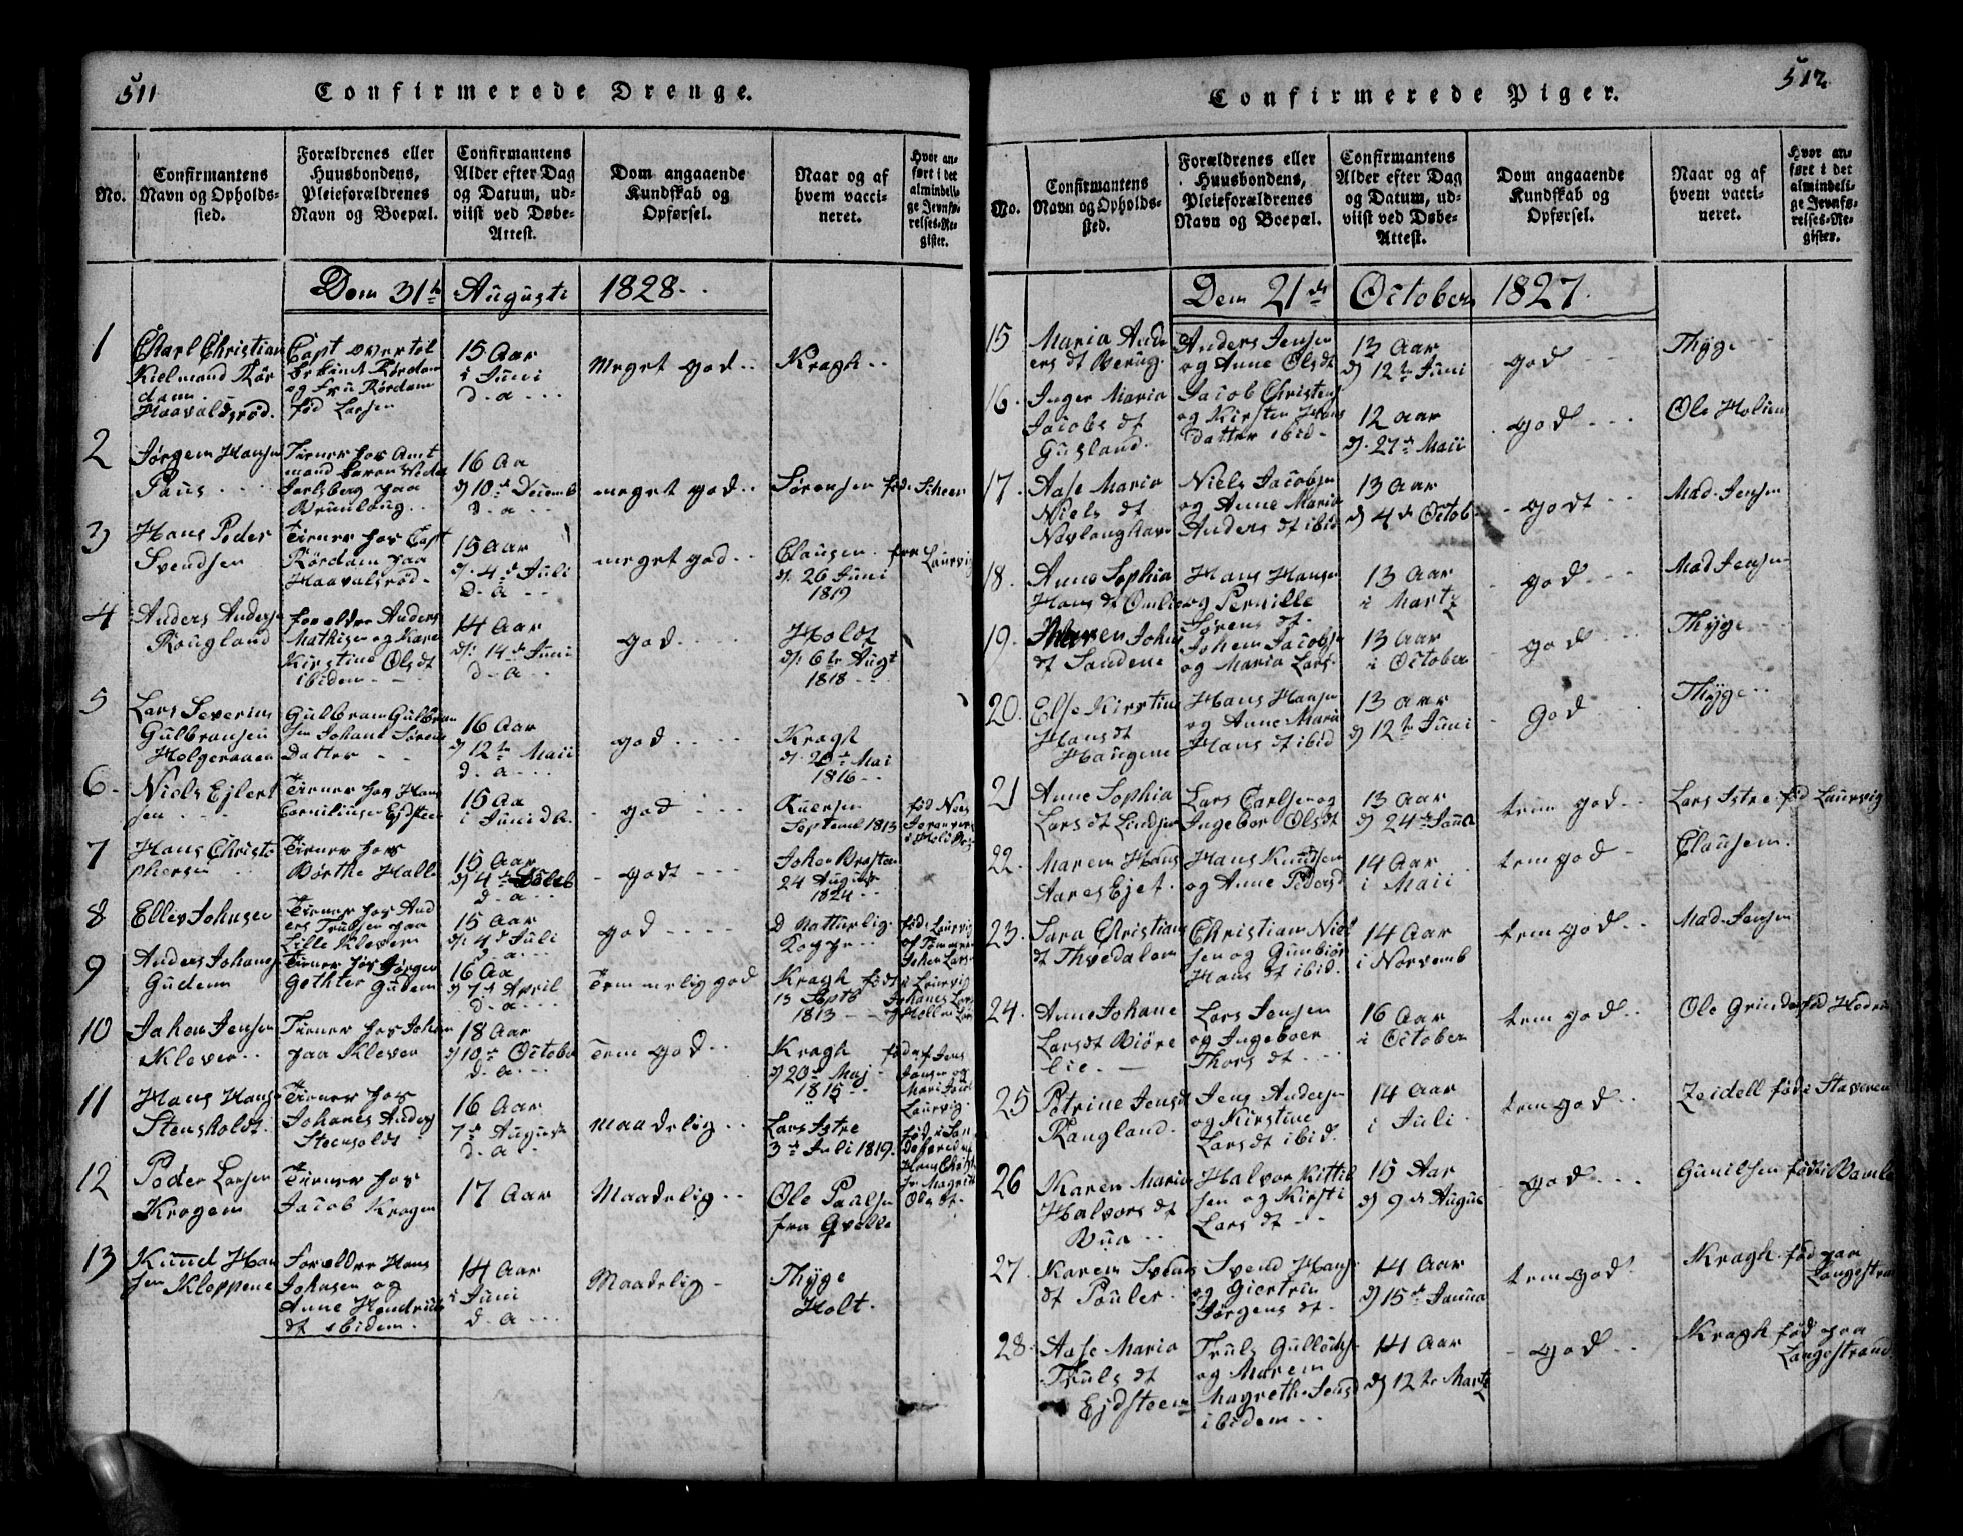 511
Confirmerede Drenge.
No.
Confirmantens
Navn og Opholds-
sted.
Forældrenes eller
Huusbondens,
Pleieforældrenes
Navn og Boepæl.
Confirmantens
Alder efter Dag
og Datum, ud-
viist ved Døbe-
Attest.
Dom angaaende
Kundskab og
Opførsel.
Naar og af
hvem vacci-
neret.
Hvor an-
ført i det
almindeli-
ge Jevnfø-
relses-Re-
gister.
Dom 31te Augusti 1828
1
Charl Christian
Kielmand Rør
dam
Haavaldsrød.
Capt
Rørdam
og Fru Rørdam
fød Larsen
15 Aar
i Juni
d. a.
Meget god
Kragh
2
Jørgen Hansen
Paus
Tiener hos Amt
mand Baron Wedel
Jarlsberg paa
Brunlaug
16 Aa
d 10de Decemb
d. a.
meget god
Sørensen fød i Scheen
3
Hans Peder
Svendsen
Tiener hos Capt
Rørdam paa
Haavalsrød
15 Aar
d. 4de Juli
d. a.
meget god
Clausen
d. 26 Juni
1819
fra Laurvig
4
Anders Anders
Rougland
Forældre Anders
Mathisen og Karen
Kirstine Olsdt
ibidem
14 Aar
d. 14de Juni
d. a.
god
Holdt
d. 6te Augt
1818
5
Lars Severin
Gulbransen
Holgeraaen
Gulbram Gulbran
sen Johane Sørens
Datter
16 Aar
d 12te Maii
d. a.
god
Kragh
Mai
1816
6
Niels Ejlert
sen
Tiener hos Hans
Cornilius Ejdsteen
15 Aa
i Juni d. a.
god
Septemb 1813
7
Hans Christo
phersen
Tiener hos
Børthe Halle
15 Aar
d. a.
godt
24 August
1824
8
Ellev Johnsen
Tiener hos And
ers Trulsen paa
Lille Klevern
15 Aar
d. 4d Juli
d. a.
god
D Natturlig
Kopper
fød i Laurvig
9
Anders Johans
Gudem
Tiener hos Jørgen
Gothter Gudem
16 Aa
d 7de April
d. a.
Temmelig god
Kragh
13 Septb
1813
født i Laurvig
Johanes Lars
10
Johan Jensen
Klever
Tiener hos Johan
paa Klever
18 Aar
d 10de October
d. a.
Tem god
Kragh
d 20de Maj
1815
fød af Jens
Jansen og
Laurvig
11
Hans Hans
Stensholdt
Tiener hos
Johanes Anders
Steensoldt
16 Aar
7de August
d. a.
Maadelig
Lars Istre
3de Juli 1819
12
Peder Larsen
Krogen
Tiener hos
Jacob Krogen
17 Aar
Maadelig
Ole Paalsen
fra
13
Knud Han
sen Kloppene
Forældre Hans
Johnsen og
Anne Hendrichs
dt ibidem
14 Aar
i Juni
d. a.
Maadelig
Thyge
Holt
512
Confirmerede Piger.
No.
Confirmantens
Navn og Opholds-
sted.
Forældrenes eller
Huusbondens,
Pleieforældrenes
Navn og Boepæl.
Confirmantens
Alder efter Dag
og Datum, ud-
viist ved Døbe-
Attest.
Dom angaaende
Kundskab og
Opførsel.
Naar og af
hvem vacci-
neret.
Hvor an-
ført i det
almindeli-
ge Jevnfø-
relses-Re-
gister.
Dem 21de October 1827
15
Maria And
ers dt Berug
Anders Jensen
og Anne Olsdt
13 Aar
d 12te Juni
god
Thyge
16.
Inger Maria
Jacobs dt
Gusland
Jacob Christens
og Kirsten Hans
datter ibid
12 Aar
d. 27de Maii
godt
Ole Holien
17.
Aase Maria
Niels dt
Niels Jacobsen
og Anne Maria
Anders dt ibid
13 Aar
d 4de Octob
godt
Mad. Jensen
18.
Anne Sophia
Hans dt Omlie
Hans Hansen
og Pernille
Sørens dt
13 Aar
i Martz
god
Mad. Jensen
19.
Maren Johns
dt Sandene
Johen Jacobsen
og Maria Lars
13 Aar
i October
god
Thyge
20.
Else Kirstine
Hansdt
Haugene
Hans Hansen
og Anne Maria
Hans dt ibid
13 Aar
d 12te Juni
God
Thyge
21
Anne Sophia
Lars dt Lindsjer
Lars Carlsen og
Ingebor Olsdt
13 Aar
d 24de Janua
tem god
Lars Istre fød Laurvig
22.
Maren Hans
Aares Ejet
Hans Knudsen
og Anne Pedersd
14 Aar
i Maii
tem god
Clausen
23.
Sara Christians
dt Thvedalen
Christian Niel
sen og Gunbiør
Hans dt ibid.
14 Aar
i Novemb
tem god
Mad. Jensen
24.
Anne Johane
Larsdt Biøre
lie
Lars Jensen
og Ingeboer
Thors dt
16 Aar
i October
tem god
Ole Grinde
25
Petrine Jensdt
Rangland
Jens Andersen
og Kirstine
Larsdt ibid
14 Aar
i Juli
tem god
Zeidell fød i Staveren
26
Karen Maria
Halvors dt
Bua
Halvor Kittil
sen og Kirsti
Lars dt
15 Aar
d 9de Augus
god
Gunilsen fød i Bamle
27.
Karen Svends
dt Pauler
Svend Hans
og Giertrin
Jørgens dt
14 Aar
d 15de Janua
tem god
Kragh fød paa
Langestran
28
Aase Maria
Truls dt
Ejdsteen
Truls Gulleichs
og Maren
Magrethe Jensd
ibidem
14 Aar
d 12te Martz
god
Kragh fød paa
Langestrand